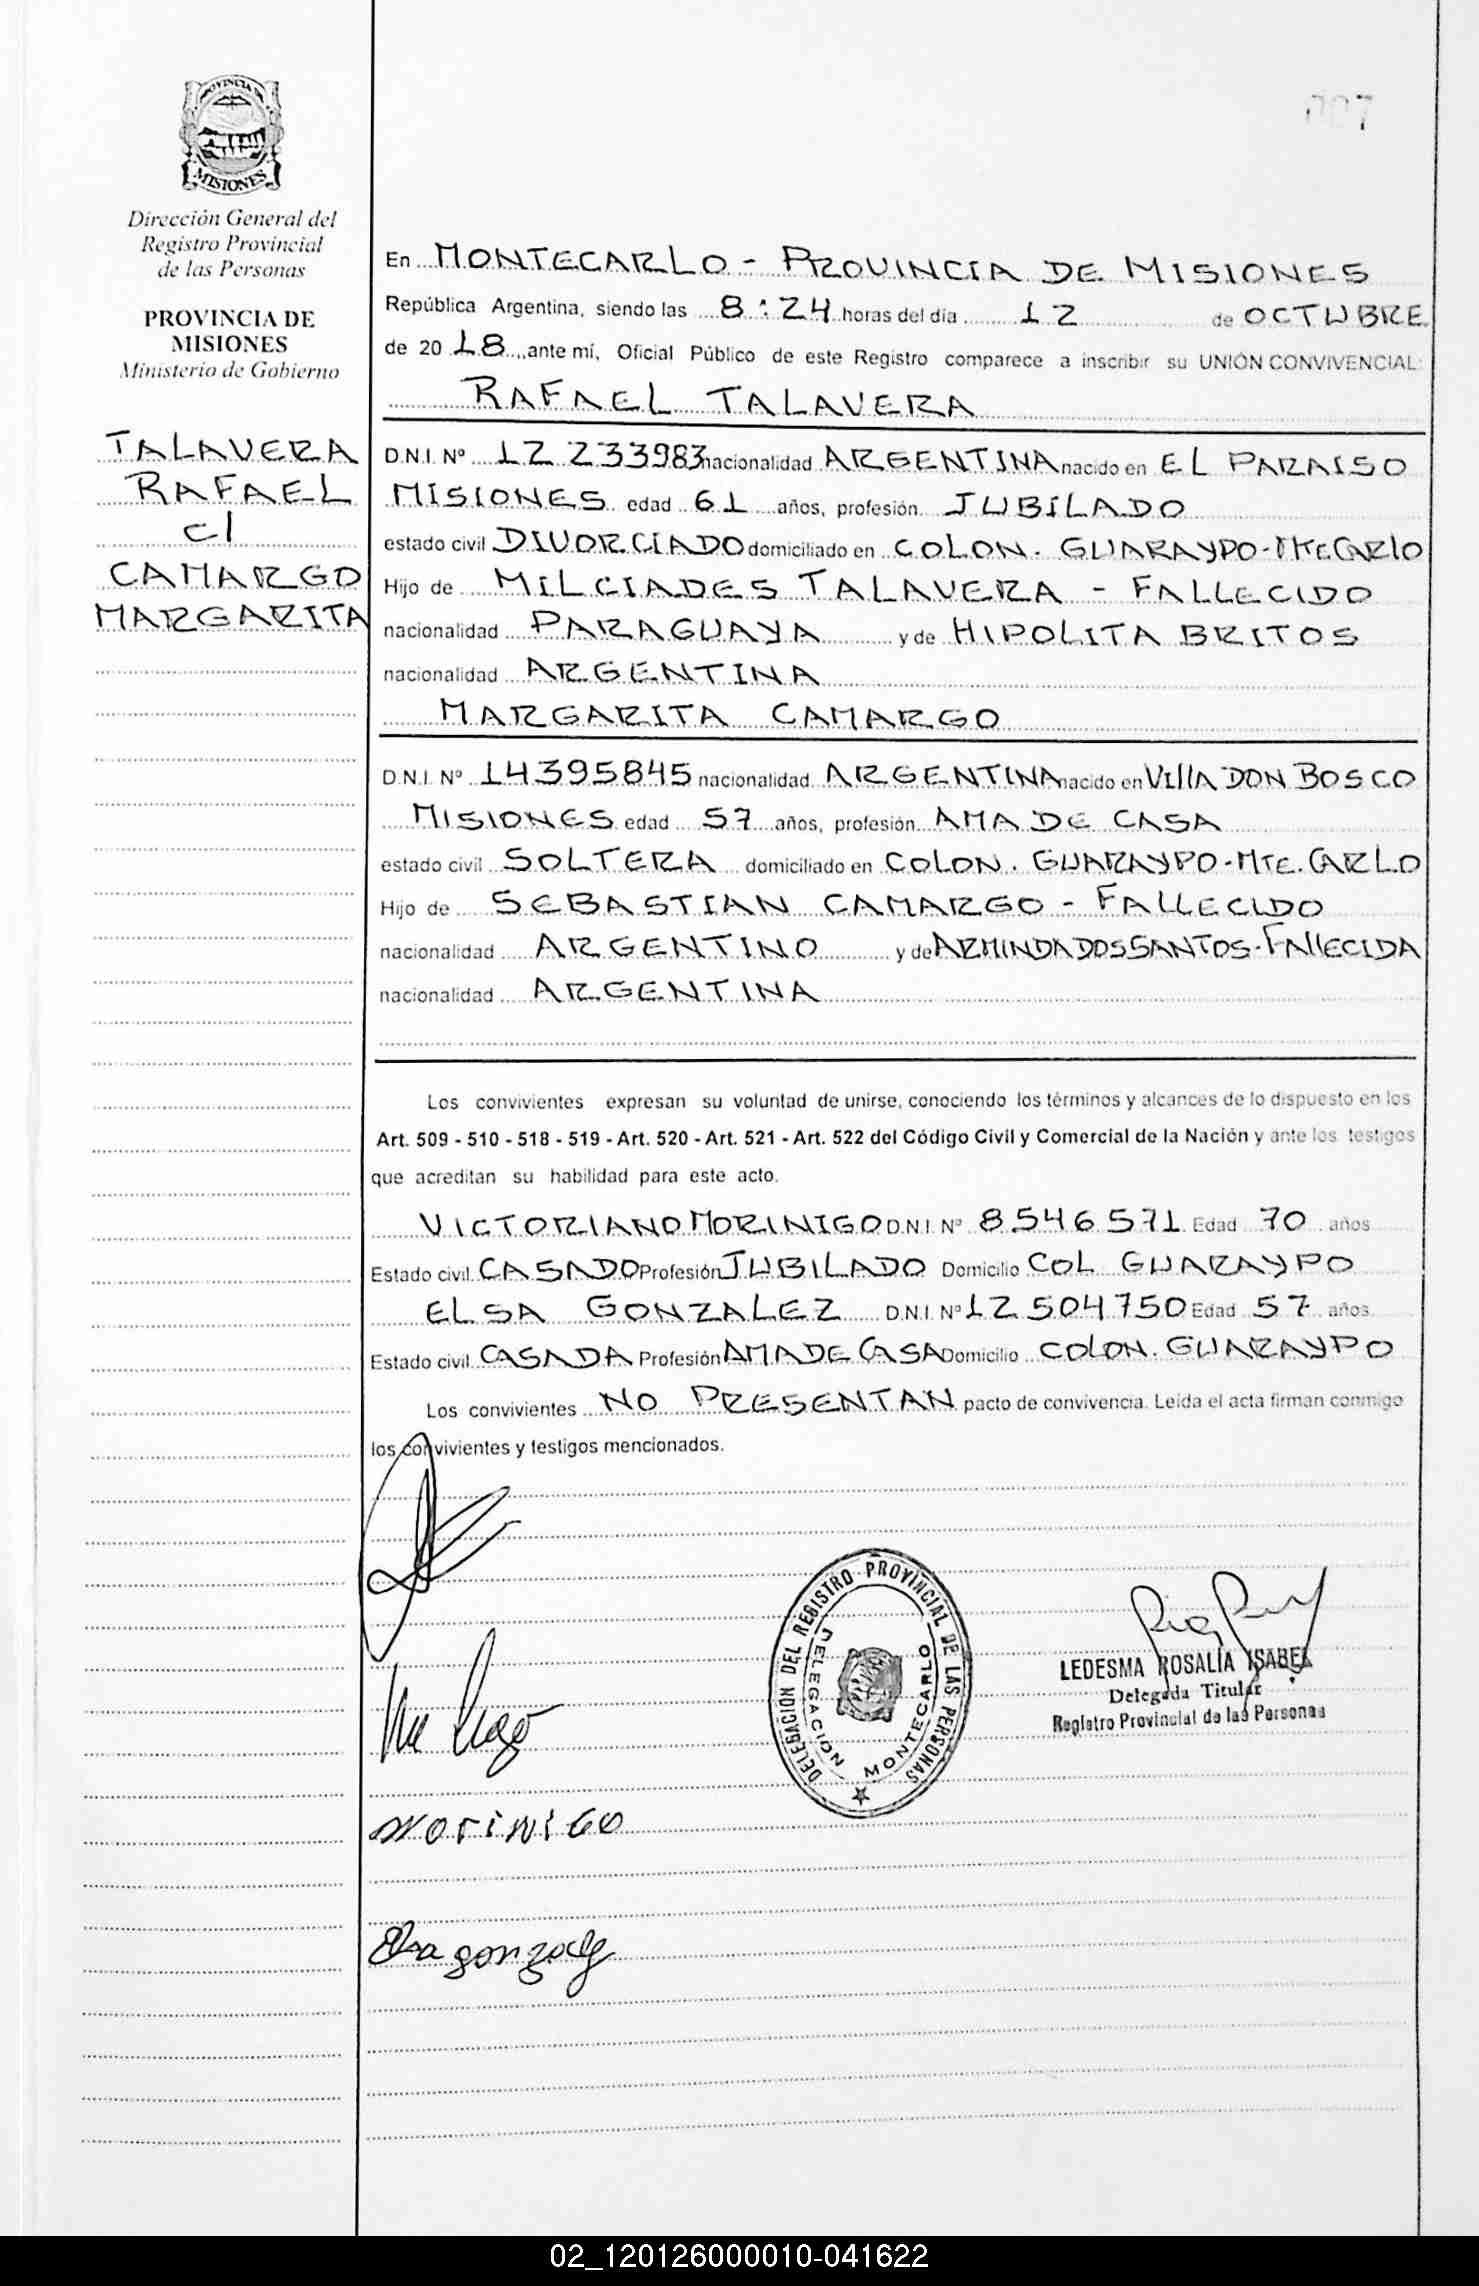 PROVINCIA DE
MISIONES
Dirección General del
Registro Provincial
de las Personas
PROVINCIA DE
MISIONES
Ministerio de Gobierno
TALAVERA
RAFAEL
C/
CAMARGO
MARGARITA
007
En MONTECARLO - PROVINCIA DE MISIONES
República Argentina, siendo las 8:24 horas del día 12 de OCTUBRE
de 2018, ante mí, Oficial Público de este Registro comparece a inscribir su UNIÓN CONVIVENCIAL:
RAFAEL TALAVERA
D.N.I. Nº 12 233983 nacionalidad ARGENTINA nacido en EL PARAISO
MISIONES edad 61 años, profesión JUBILADO
estado civil DIVORCIADO domiciliado en COLON. GUARAYPO-MTE CARLO
Hijo de MILCIADES TALAVERA - FALLECIDO
nacionalidad PARAGUAYA y de HIPOLITA BRITOS
nacionalidad ARGENTINA
MARGARITA CAMARGO
D.N.I. Nº 14395845 nacionalidad ARGENTINA nacido en VILLA DON BOSCO
MISIONES edad 57 años, profesión AMA DE CASA
estado civil SOLTERA domiciliado en COLON. GUARAYPO-MTE. CARLO
Hijo de SEBASTIAN CAMARGO - FALLECIDO
nacionalidad ARGENTINO y de ARMINDA DOS SANTOS-FALLECIDA
nacionalidad ARGENTINA
Los convivientes expresan su voluntad de unirse, conociendo los términos y alcances de lo dispuesto en los
Art. 509 - 510 - 518 - 519 - Art. 520 - Art. 521 - Art. 522 del Código Civil y Comercial de la Nación y ante los testigos
que acreditan su habilidad para este acto.
VICTORIANO MORINIGO D.N.I. Nº 8546571 Edad 70 años
Estado civil CASADO Profesión JUBILADO Domicilio COL GUARAYPO
ELSA GONZALEZ D.N.I. Nº 12504750 Edad 57 años
Estado civil CASADA Profesión AMA DE CASA Domicilio COLON. GUARAYPO
Los convivientes NO PRESENTAN pacto de convivencia. Leída el acta firman conmigo
los convivientes y testigos mencionados.
DELEGACION DEL REGISTRO PROVINCIAL DE LAS PERSONAS
DELEGACION MONTECARLO
LEDESMA ROSALIA ISABEL
Delegada Titular
Registro Provincial de las Personas
MORiNiGO
Elsa gonzalez
02_120126000010-041622